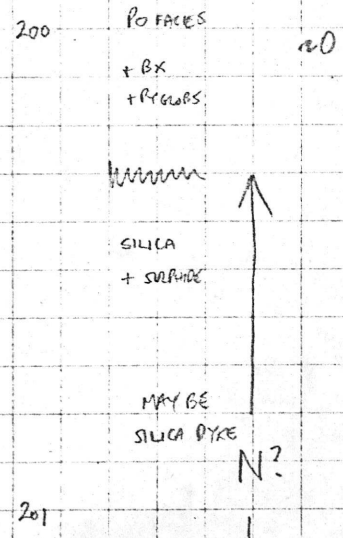 200 PO FACES ~0
+ BX
+ PY GLOBS
SILICA
+ SULPHIDE
MAY BE
SILICA DYKE
N?
201